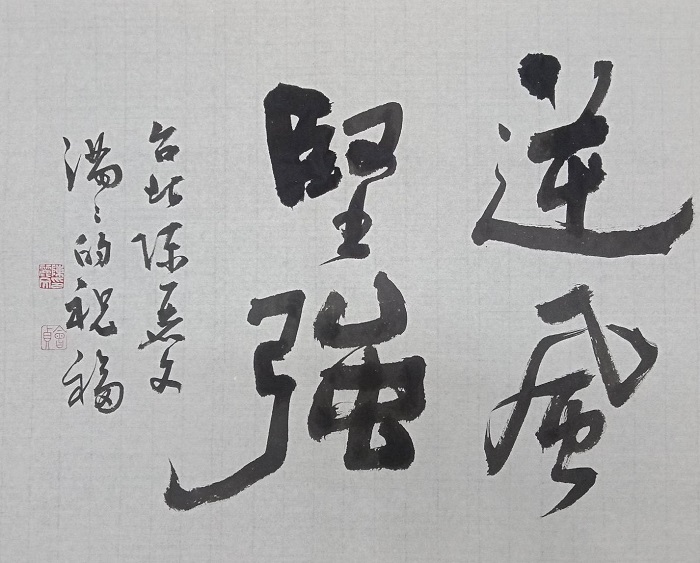 逆風
堅強
台北陳炁文
滿滿的祝福